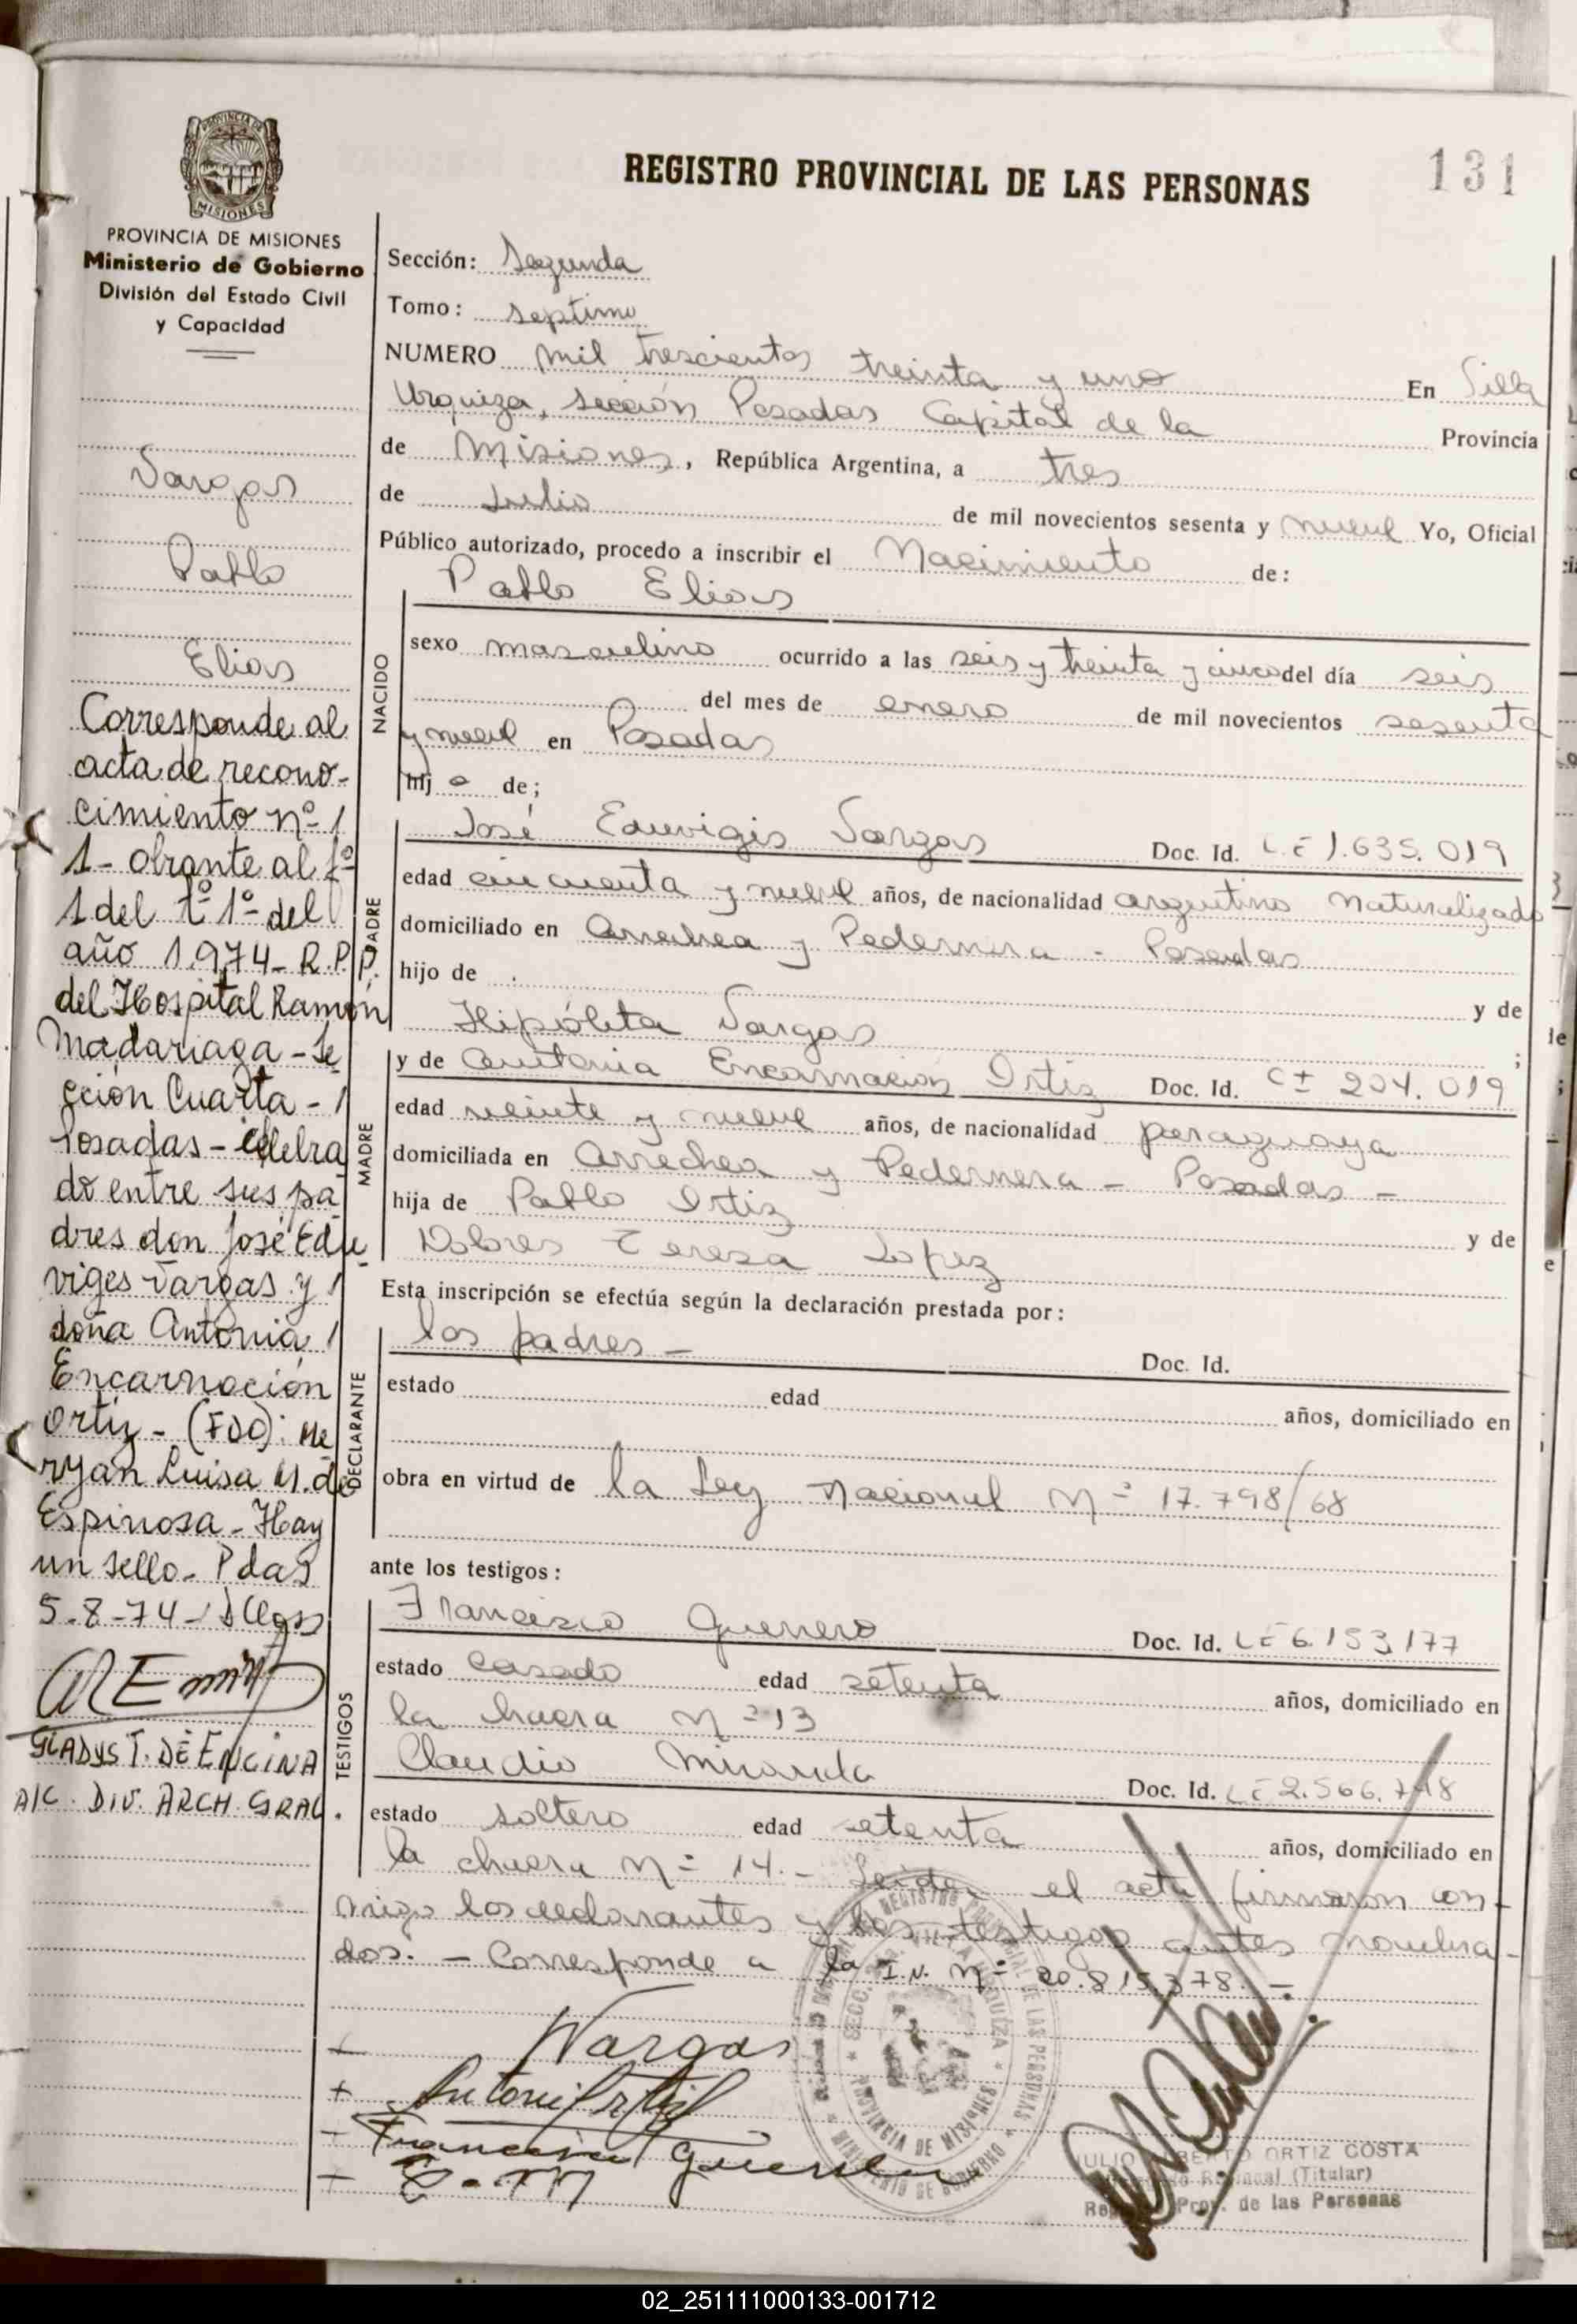 131
REGISTRO PROVINCIAL DE LAS PERSONAS
PROVINCIA DE
MISIONES
PROVINCIA DE MISIONES
Ministerio de Gobierno
División del Estado Civil
y Capacidad
Vargas
Pablo
Elias
Corresponde al
acta de recono-
cimiento nº 1
1- obrante al fº
1 del tº 1º del
año 1.974- R.P.P.
del Hospital Ramón
Madariaga - Se
cción Cuarta -
Posadas - celebra
do entre sus pa
dres don José Edu
viges Vargas y
doña Antonia
Encarnación
Ortiz - (FDO): Me
ryan Luisa M. de
Espinosa - Hay
un sello - Pdas
5-8-74-
GLADYS T. DE ENCINA
A/C. DIV. ARCH. GRAL.
Sección: Segunda
Tomo: septimo
NUMERO mil trescientos treinta y uno En Villa
Urquiza, sección Posadas Capital de la Provincia
de Misiones, República Argentina, a tres
de Julio de mil novecientos sesenta y nueve Yo, Oficial
Público autorizado, procedo a inscribir el Nacimiento de:
Pablo Elias
NACIDO
sexo masculino ocurrido a las seis y treinta y cinco del día seis
del mes de enero de mil novecientos sesenta
y nueve en Posadas
hij o de;
PADRE
José Eduvigis Vargas Doc. Id. L.E 1.635.019
edad cincuenta y nueve años, de nacionalidad argentino Naturalizado
domiciliado en Arrechea y Pedernera - Posadas
hijo de y de
Hipólita Vargas ;
MADRE
y de Antonia Encarnación Ortiz Doc. Id. CI 204.019
edad veinte y nueve años, de nacionalidad paraguaya
domiciliada en Arrechea y Pedernera - Posadas -
hija de Pablo Ortiz y de
Dolores Teresa Lopez
Esta inscripción se efectúa según la declaración prestada por:
DECLARANTE
los padres - Doc. Id.
estado edad años, domiciliado en
obra en virtud de la Ley Nacional Nº 17.798/68
ante los testigos:
TESTIGOS
Francisco Guerrero Doc. Id. LE 6.153.177
estado casado edad setenta años, domiciliado en
la chacra Nº 13
Claudio Miranda Doc. Id. LE 2.566.748
estado soltero edad setenta años, domiciliado en
la chacra Nº 14.- Leida el acta firmaron con-
migo los declarantes y los testigos antes nombra-
dos. - Corresponde a la I.N. Nº 20.815.378.-
Vargas
Antonia Ortiz
Francisco Guerrero
C. M
REGISTRO PROVINCIAL DE LAS PERSONAS
SECC. 2da. VILLA URQUIZA
PROVINCIA DE MISIONES
MINISTERIO DE GOBIERNO
JULIO ALBERTO ORTIZ COSTA
(Titular)
Reg. Prov. de las Personas
02_251111000133-001712